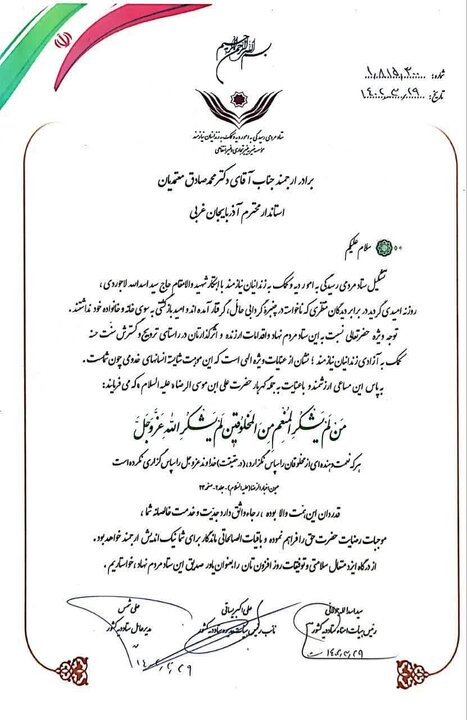 بسم الله الرحمن الرحیم
شماره:
تاریخ: ۱۴۰۲٫۳٫۲۹
ستاد مردمی رسیدگی به امور دیه و کمک به زندانیان نیازمند
مؤسسه خیریه غیرتجاری و غیرانتفاعی
برادر ارجمند جناب آقای دکتر محمد صادق معتمدیان
استاندار محترم آذربایجان غربی
سلام علیکم
تشکیل ستاد مردمی رسیدگی به امور دیه و کمک به زندانیان نیازمند با ابتکار شهید والامقام حاج سید اسدالله لاجوردی،
روزنه امیدی گردید در برابر دیدگان منتظری که ناخواسته در چنبره گردابی حائل، گرفتار آمده اند و امید بازگشتی به سوی خانه و خانواده خود نداشتند.
توجه ویژه حضرتعالی نسبت به این ستاد مردم نهاد و اقدامات ارزنده و اثرگذارتان در راستای ترویج و گسترش سنت حسنه
کمک به آزادی زندانیان نیازمند؛ نشان از عنایات ویژه الهی است که این موهبت شایسته انسانهای خدومی چون شماست.
به پاس این مساعی ارزشمند و با عنایت به جمله گهربار حضرت علی ابن موسی الرضا علیه السلام، که می فرمایند:
مَن لَم یَشکُرِ المُنعِمَ مِنَ المَخلوقینَ لَم یَشکُرِ اللهَ عَزَّوَجَلَّ
هر که نعمت دهنده ای از مخلوقان را سپاس نگزارد، (در حقیقت) خداوند عزوجل را سپاس گزاری نکرده است
عیون اخبار الرضا(علیه السلام)، جلد۲، صفحه ۲۴
قدردان این همت والا بوده، رجاء واثق دارد جدیت و خدمت خالصانه شما،
موجبات رضایت حضرت حق را فراهم نموده و باقیات الصالحاتی ماندگار برای شما نیک اندیش ارجمند خواهد بود.
از درگاه ایزد متعال سلامتی و توفیقات روزافزون تان را بعنوان یاور صدیق این ستاد مردم نهاد، خواستاریم.
سید اسدالله جولایی
رئیس هیات امناء ستاد دیه کشور
۱۴۰۲٫۳٫۲۹
علی اکبر یساقی
نائب رئیس هیات مدیره ستاد دیه کشور
علی شمس
مدیرعامل ستاد دیه کشور
۱۴۰۲٫۳٫۲۹